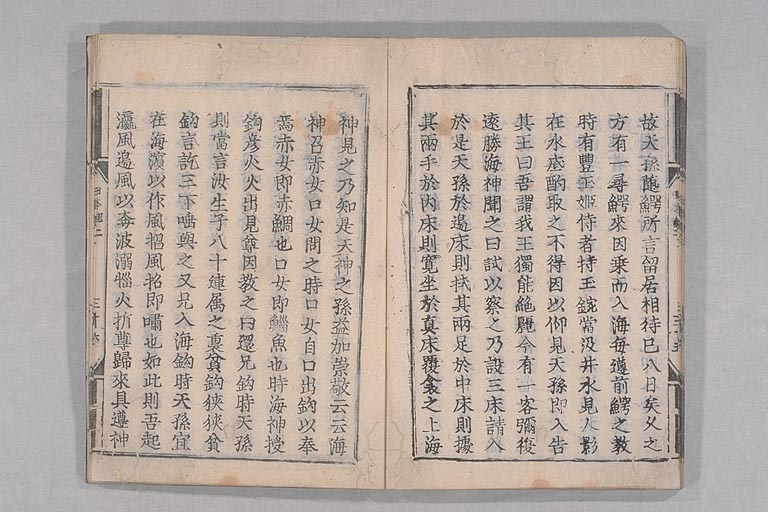 故天孫隨鰐所言留居相待已八日矣久之
方有一尋鰐來因乘而入海每遵前鰐之教
時有豐玉姬侍者持玉鋺當汲井水見人影
在水底酌取之不得因以仰見天孫即入告
其王曰吾謂我王獨能絶麗今有一客彌復
遠勝海神聞之曰試以察之乃設三床請入
於是天孫於邊床則拭其兩足於中床則據
其兩手於內床則寛坐於真床覆衾之上海
神見之乃知是天神之孫益加崇敬云云海
神召赤女口女問之時口女自口出鈎以奉
焉赤女即赤鯛也口女即鯔魚也時海神授
鈎彥火火出見尊因教之曰還兄鈎時天孫
則當言汝生子八十連屬之裏貧鈎狹狹貧
鈎言訖三下唾與之又兄入海鈎時天孫宜
在海濱以作風招風招即嘯也如此則吾起
瀛風邊風以奔波溺惱火折尊歸來具遵神